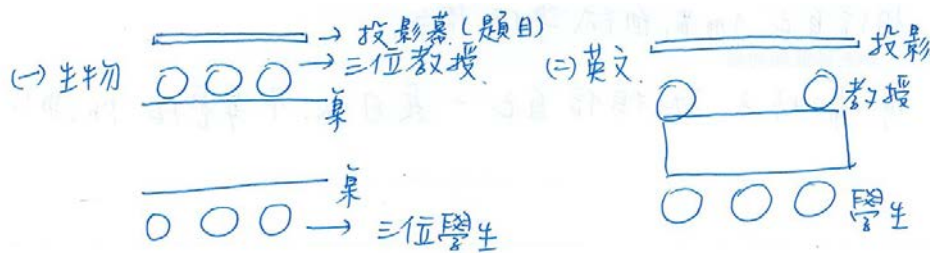 (一) 生物
→ 投影幕(題目)
→ 三位教授
桌
桌
→ 三位學生
(二) 英文
投影
教授
學生